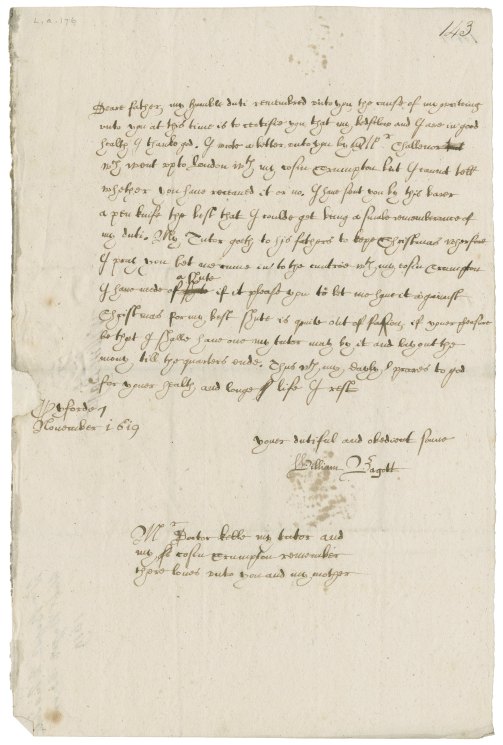 L.a.176
143
Deare father, my humble duti remembred unto you the cause of my writing
unto you at this time is to certifie you that my bedfellow and I are in good
health I thanke god. I wrote a letter unto you by Mr
wch went up to London wth my cosin Crumpton but I cannot tell
whether you have receaved it or no. I have sent you by this bearer
a pen knife the best that I coulde get being a small remembrance of
my duti. My Tutor goeth to his fathers to kepe Christmas wherfore
I pray you let me come in to the cuntrie wth my cosin Crumpton
a shute
I have nede of if it please you to let me have it against
Christmas for my best shute is quite out of fashion, if youer pleasure
be that I shalle have one my tutor may by it and lay out the
mony till the quarters ende. Thus wth my dayly praiers to god
for youer health and longe life I rest
Oxforde 7
November 1619
youer dutiful and obedient sonne
William Bagott
Mr Doctor Kelle my tutor and
my cosin Crumpton remember
there loves unto you and my mother